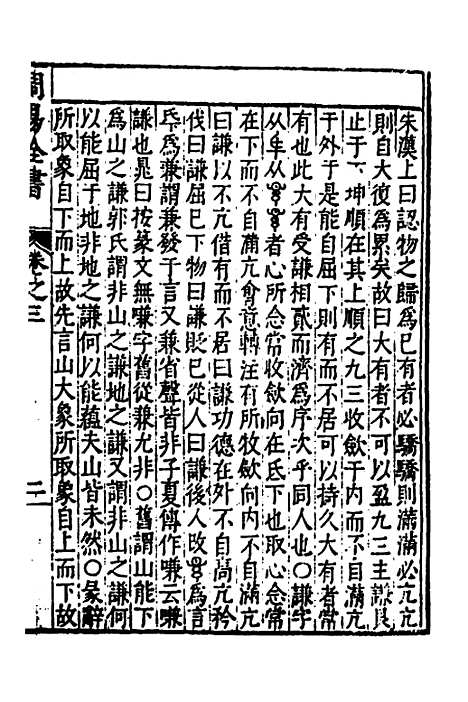 朱漢上曰認物之歸為已有者必驕驕則滿滿必亢亢
則自大復為累矣故曰大有者不可以盈九三主謙艮
止于下坤順在其上順之九三收歛于内而不自滿亢
于外于是能自屈下則有而不居可以持久大有者常
有也此大有受謙相貳而濟為序次乎同人也○謙字
从牟从者心所念常收歛向在氐下也取心念常
在下而不自滿亢會意轉注有所牧歛向内不自滿亢
曰謙以不亢借有而不居曰謙功德在外不自高亢矜
伐曰謙屈已下物曰謙貶已從人曰謙後人改為言
為兼謂兼發于言又兼省聲皆非子夏傳作嗛云嗛
謙也晁曰按篆文無嗛字舊從兼尤非○舊謂山能下
為山之謙郭氏謂非山之謙地之謙又謂非山之謙何
以能屈于地非地之謙何以能蘊夫山皆未然○彖辭
所取象自下而上故先言山大象所取象自上而下故
周易全書
卷之三
二